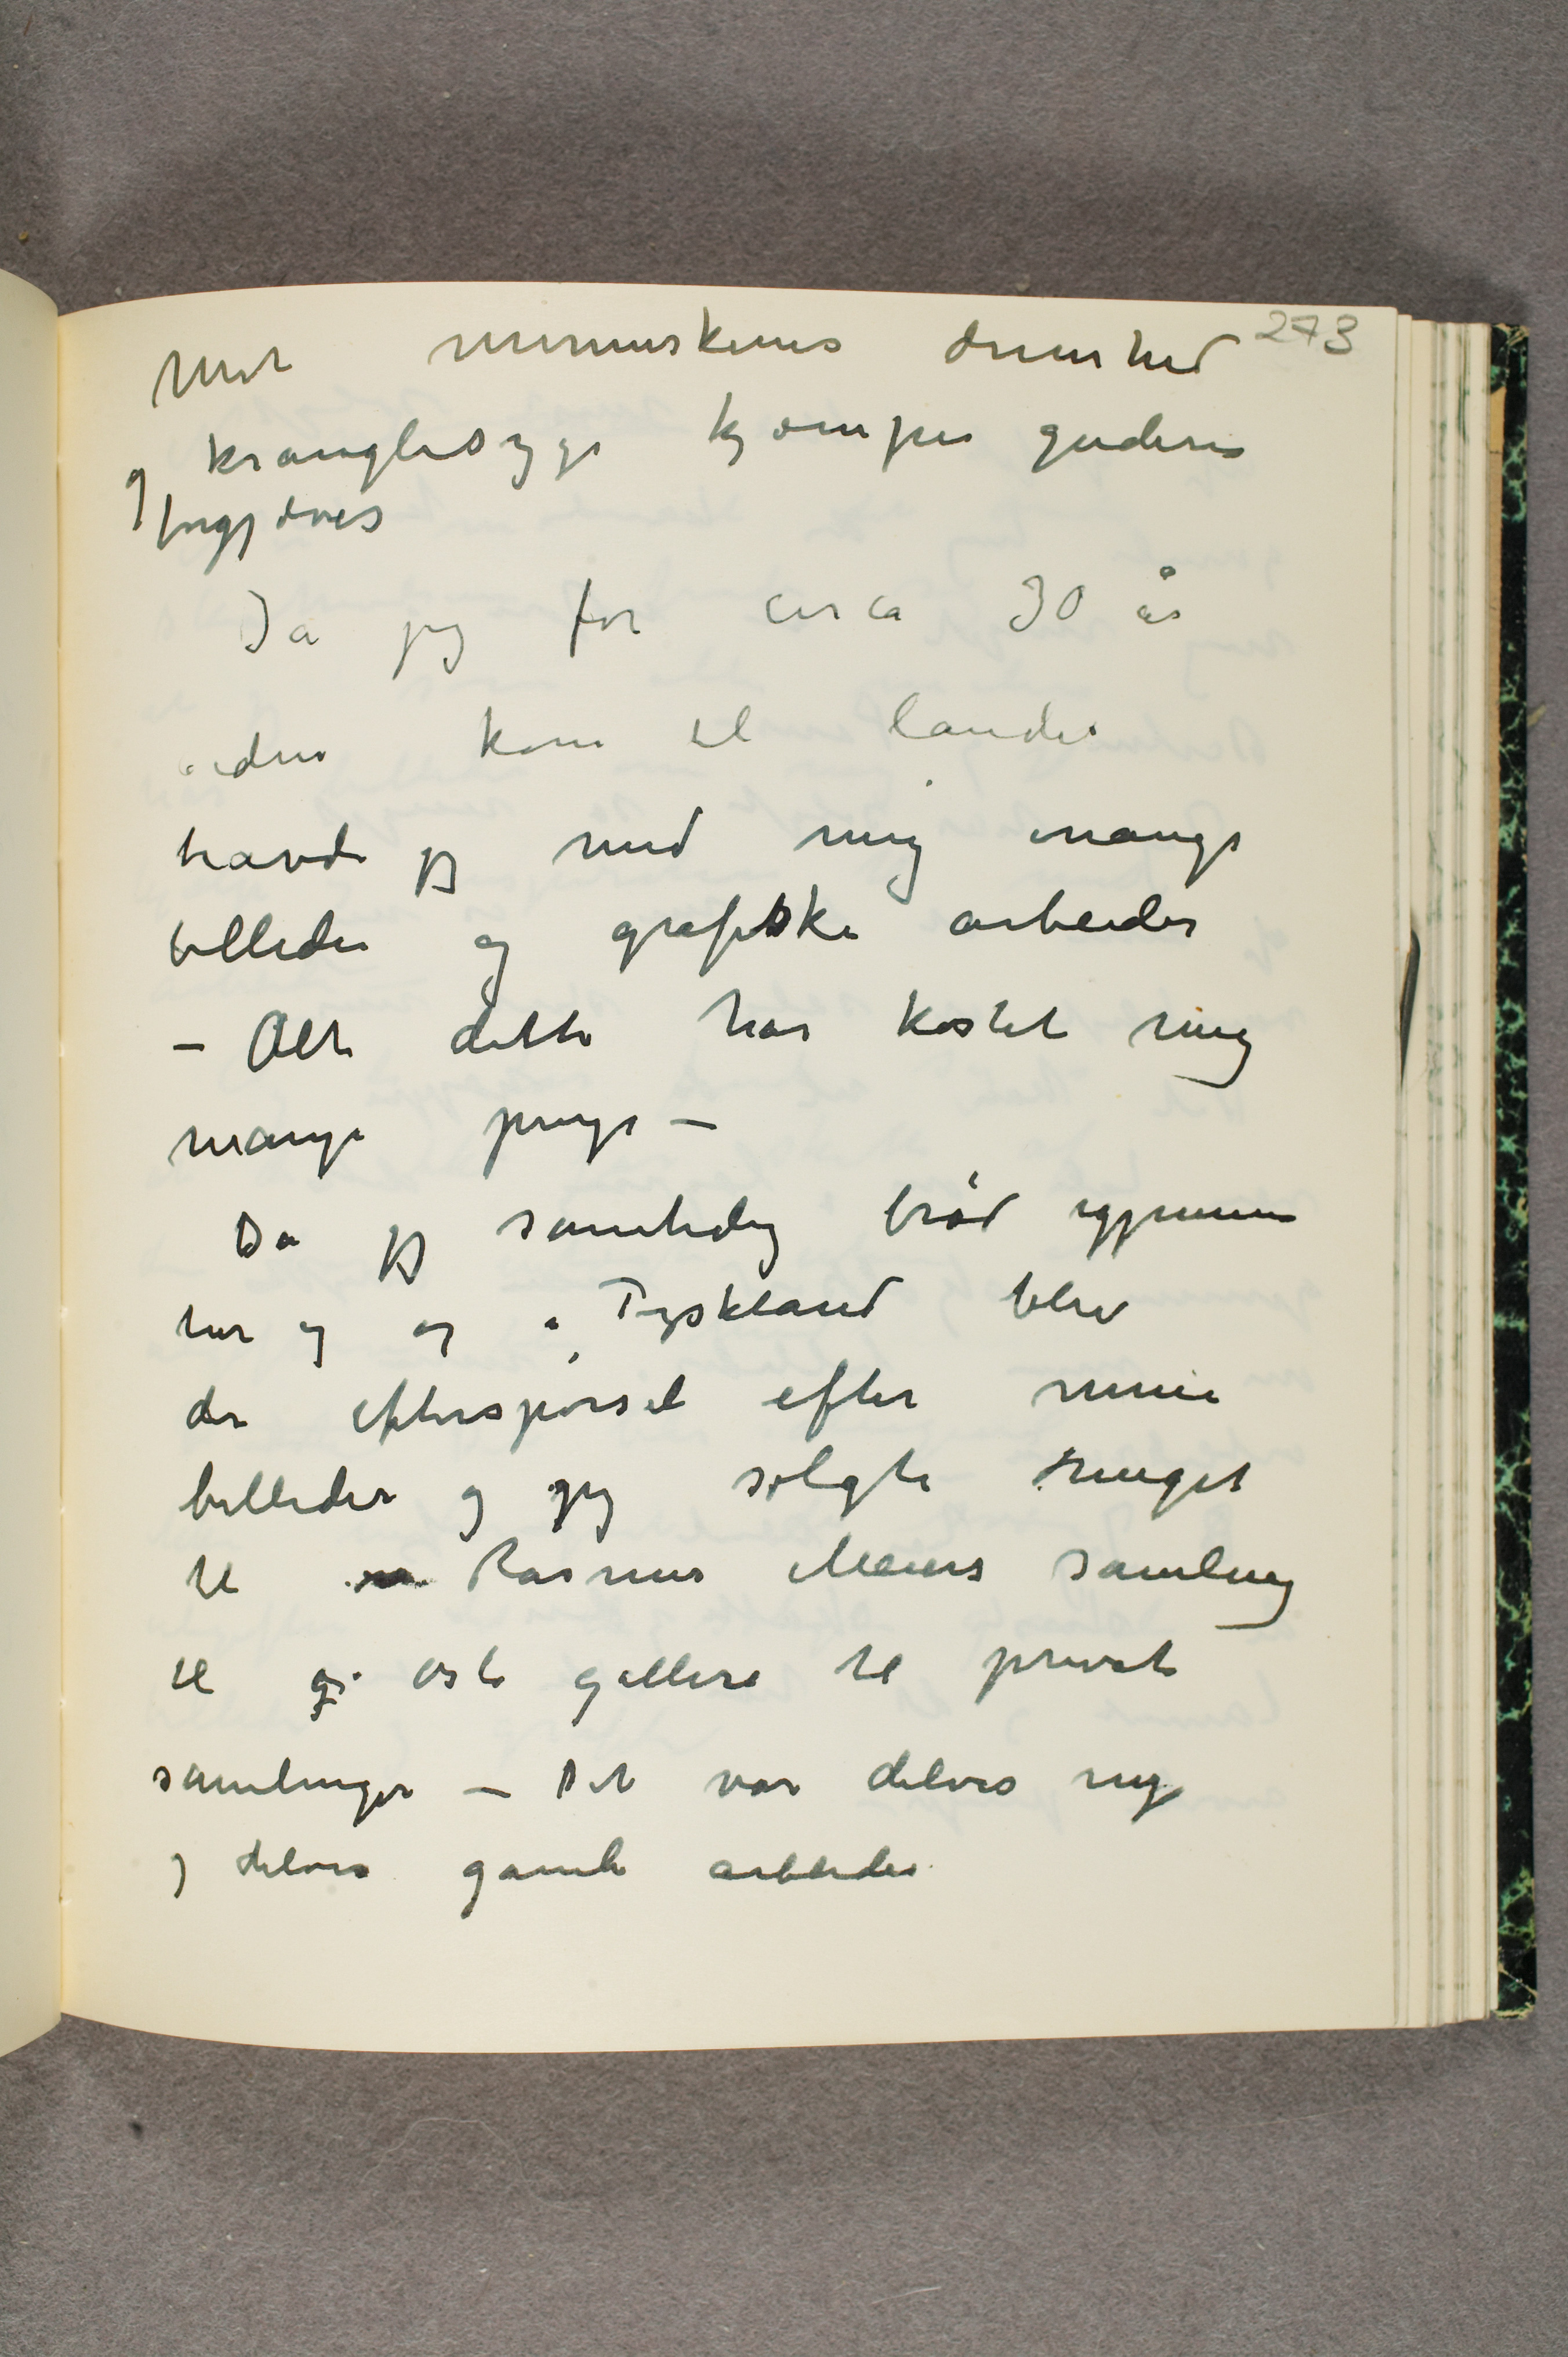 273
Mot menneskenes dumhed
og kranglesyge kjæmper guderne
forgjæves
Da jeg for circa 30 år
siden kom til landet
havde jeg med mig mange
billeder og grafiske arbeider
– Alt dette har kostet mig
mange penge –
Da jeg samtidig brød igjennem
her og og i Tyskland blev
der efterspørsel efter mine
billeder og jeg solgte meget
til Rasmus Meiers samling
til Oslo galleri til private
samlinger – Det var delvis nye
og delvis gamle arbeider